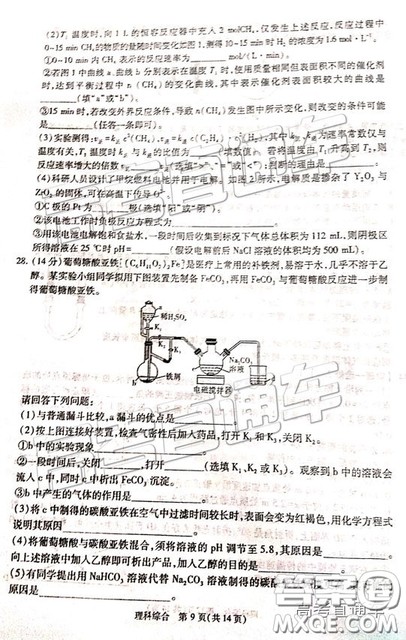 (2)T₁温度时,向1 L的恒容反应器中充入2 molCH₄,仅发生上述反应,反应过程中
0~15 min CH₄的物质的量随时间变化如图1,测得10~15 min时H₂的浓度为1.6 mol·L⁻¹.
①0~10 min内CH₄表示的反应速率为
②若图1中曲线a、曲线b分别表示在温度T₁时,使用质量相同但表面积不同的催化剂
时,达到平衡过程中n(CH₄)的变化曲线,其中表示催化剂表面积较大的曲线是
(填“a”或“b”)。
③15 min时,若改变外界反应条件,导致n(CH₄)发生图中所示变化,则改变的条件可能
是 (任答一条即可)。
反应速率增大的倍数 (选填“>”“=”或“<”),判断的理由是
(4)科研人员设计了甲烷燃料电池并用于电解。如图2所示,电解质是掺杂了Y₂O₃与
ZrO₂的固体,可在高温下传导O²⁻
①C极的Pt为 极(选填“阳”或“阴”)。
②该电池工作时负极反应方程式为
③用该电池电解饱和食盐水,一段时间后收集到标况下气体总体积为112 mL,则阴极区
所得溶液在25℃时pH= (假设电解前后NaCl溶液的体积均为500 mL)。
28.(14分)葡萄糖酸亚铁{[C₆H₁₁O₇]₂Fe}是医疗上常用的补铁剂,易溶于水,几乎不溶于乙
醇。某实验小组同学拟用如图装置先制备FeCO₃,再用FeCO₃与葡萄糖酸反应进一步制
得葡萄糖酸亚铁。
稀H₂SO₄
a
K₁
K₂
K₃
b
铁屑
c
Na₂CO₃
溶液
电磁搅拌器
请回答下列问题:
(1)与普通漏斗比较,a漏斗的优点是
(2)按上图连接好装置,检查气密性后加入药品,打开K₁和K₃,关闭K₂。
①b中的实验现象
②一段时间后,关闭 打开 (选填K₁、K₂或K₃)。观察到b中的溶液会
流入c中,同时c中析出FeCO₃沉淀。
③b中产生的气体的作用是
(3)将c中制得的碳酸亚铁在空气中过滤时间较长时,表面会变为红褐色,用化学方程式
说明其原因
(4)将葡萄糖酸与碳酸亚铁混合,须将溶液的pH调节至5.8,其原因是
向上述溶液中加入乙醇即可析出产品,加入乙醇的目的是
(5)有同学提出用NaHCO₃溶液代替Na₂CO₃溶液制得的碳酸
原因是
理科综合 第9页(共14页)
高考直通车
答案圈
高考直通车
MXQE.COM